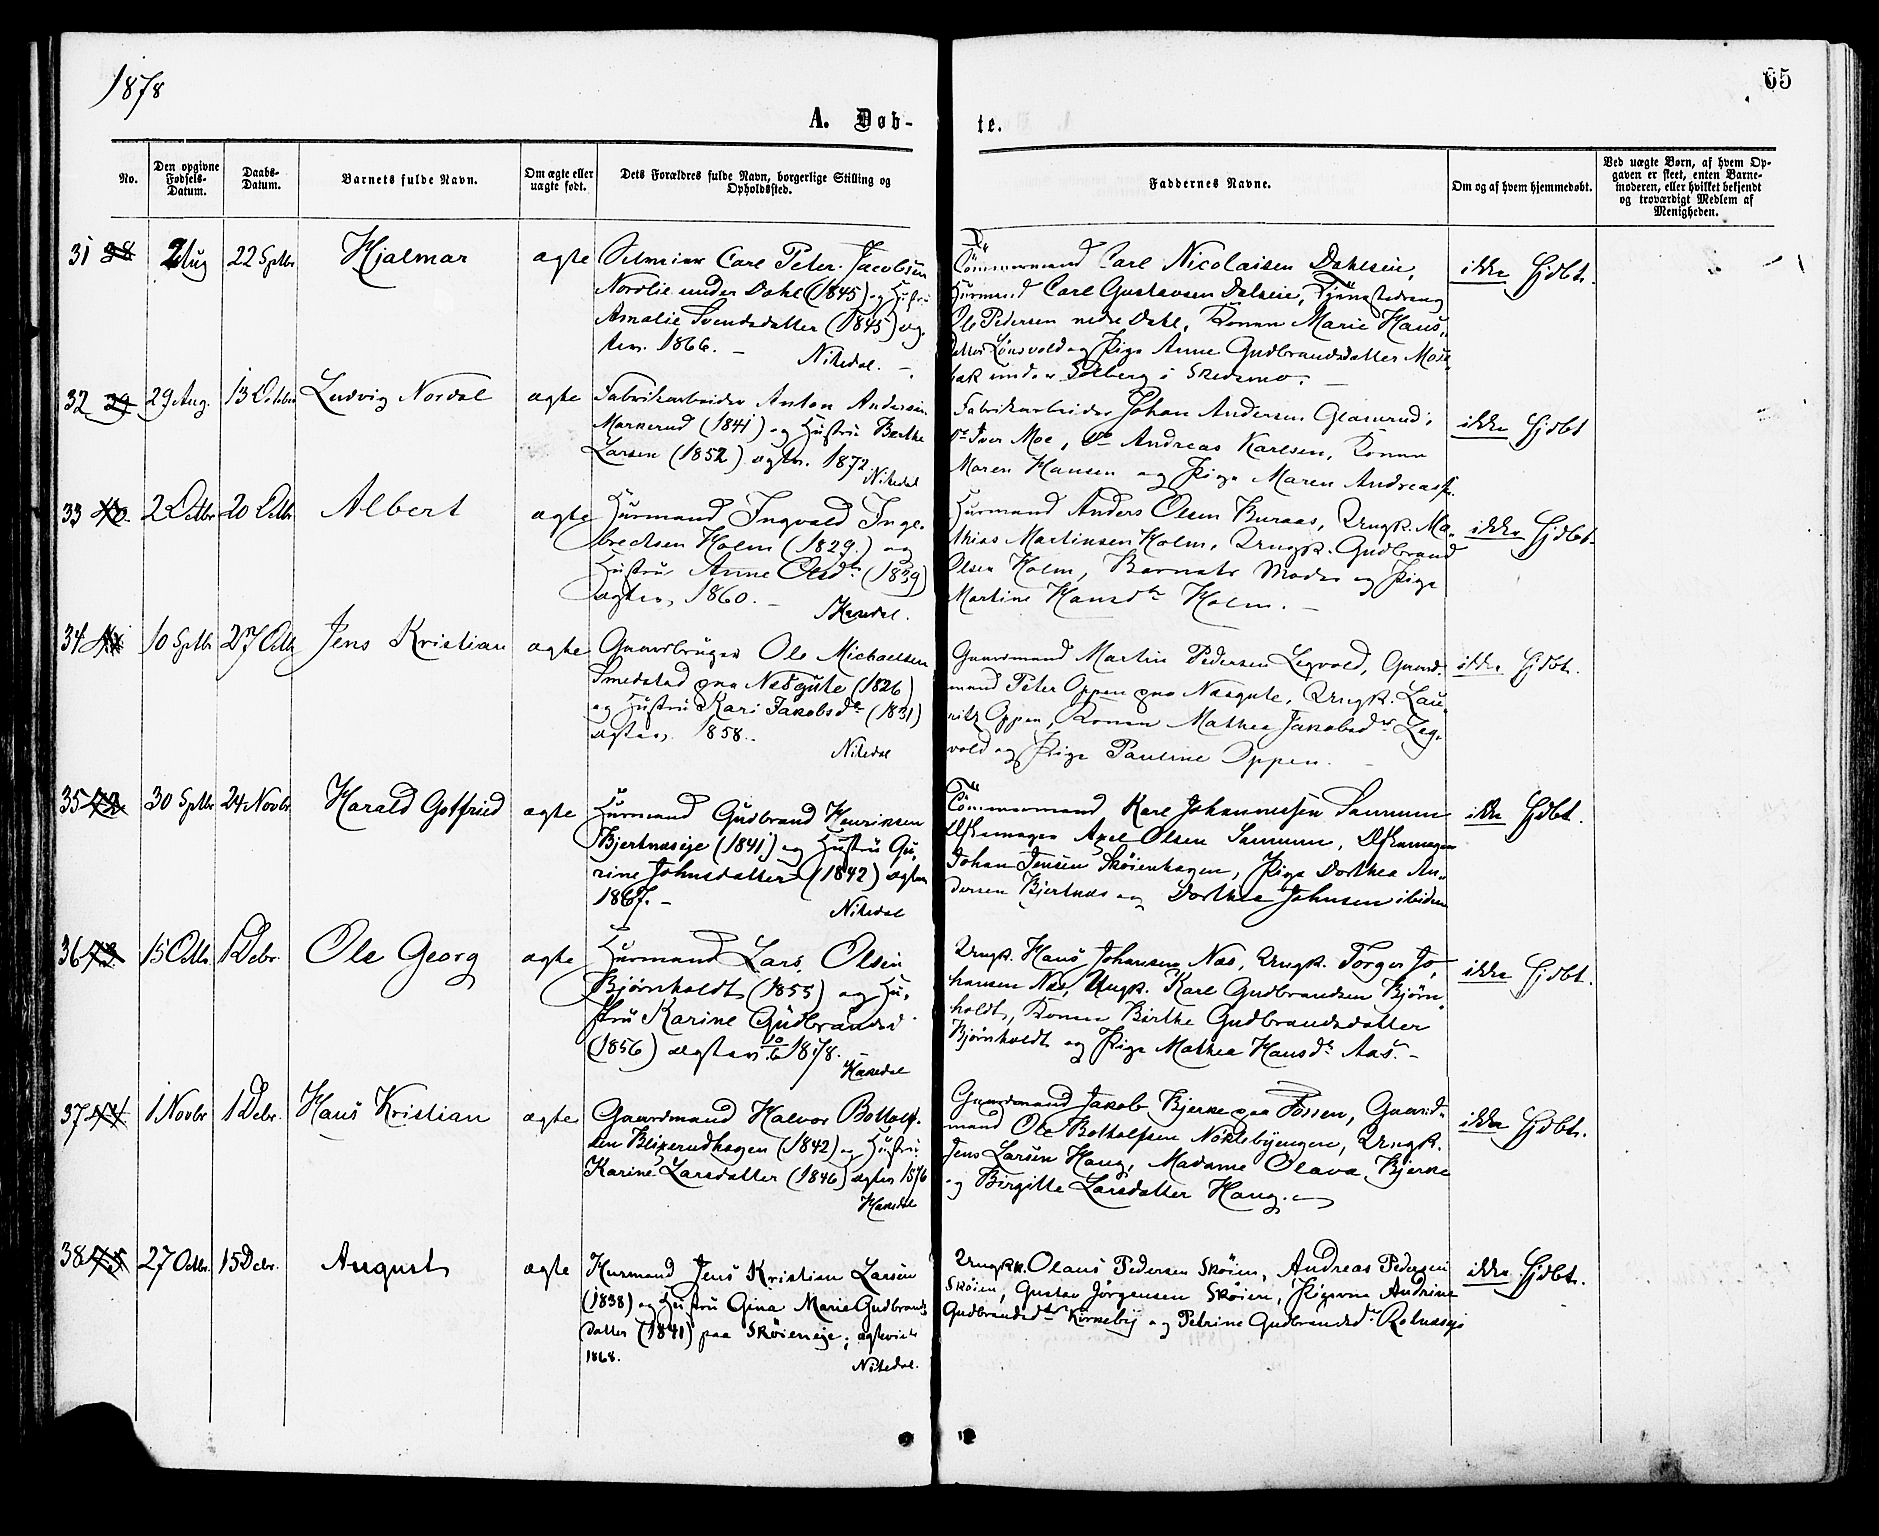 1878
65
A. Døb-
te.
No.
Den opgivne
Fødsels-
Datum.
Daabs-
Datum.
Barnets fulde Navn.
Om ægte eller
uægte født.
Dets Forældres fulde Navn, borgerlige Stilling og
Opholdssted.
Faddernes Navne.
Om og af hvem hjemmedøbt.
Ved uægte Børn, af hvem Op-
gaven er skeet, enten Barne-
moderen, eller hvilket bekjendt
og troværdigt Medlem af
Menigheden.
31 38 2 Aug 22 Sptbr Hjalmar ægte
Carl Peter Jacobsen
Nordlie under Dahl (1845) og Hustru
Amalie Svendsdatter (1845) æg-
tev. 1866. —
Nitedal. —
Tømmermand Carl Nicolaisen Dahlseie,
Husmand Carl Gustavsen Dalseie, Tjenestedreng
Ole Pedersen nedre Dahl, Konen Marie Hans-
datter Lønsvold og Pige Anne Gudbrandsdatter Mose-
bæk under Solberg i Skedsmo. —
ikke Hjdbt.
32 39 29 Aug. 13 Octbr Ludvig Nordal ægte
Fabrikarbeider Anton Andersen
Markerud (1841) og Hustru Berthe
Larsen (1852) ægtev. 1872.
Nitedal
Fabrikarbeider Johan Andersen Glaserud,
do Iver Moe, do Andreas Karlsen, Konen
Maren Hansen og Pige Maren Andreas
ikke Hjdbt
33 40 2 Octbr 20 Octbr Albert ægte
Husmand Ingvald Inge-
bretsen Holm (1829) og
Hustru Anne Olsdtr (1839)
ægtev. 1860. —
Hakedal.
Husmand Anders Olsen Buraas, Ungk. Ma-
thias Martinsen Holm, Ungk. Gudbrand
Olsen Holm, Barnets Moder og Pige
Martine Hansdtr Holm. —
ikke Hjdbt.
34 41 10 Sptbr 27 Octbr Jens Kristian ægte
Gaardbruger Ole Michaelsen
Smedstad paa Næsgute (1826)
og Hustru Kari Jakobsdtr (1831)
ægtev. 1858. —
Nitedal
Gaardmand Martin Pedersen Legvold, Gaard-
mand Peter Oppen paa Næsgute, Ungk. Lau-
ritz Oppen, Konen Mathea Jakobsdtr Leg-
vold og Pige Pauline Oppen. —
ikke Hjdbt.
35 42 30 Sptbr 24 Novbr Harald Gotfried ægte
Husmand Gudbrand Henriksen
Bjertnæseje (1841) og Hustru Gu-
rine Johnsdatter (1842) ægtev
1867. —
Nitedal
Tømmermand Karl Johannessen Sammen
Axel Olsen Sammen,
Johan Jensen Skøienhagen, Pige Dorthea An-
dersen Bjertnæs og Dorthea Johnsen ibidem
ikke Hjdbt.
36 43 15 Octbr 1 Debr. Ole Georg ægte
Husmand Lars Olsen
Bjørnholdt (1855) og Hu-
stru Karine Gudbrandsd.
(1856) ægtev 10/6 1878. —
Hakedal
Ungk. Hans Johansen Næs, Ungk. Torger Jo-
hansen Næs, Ungk. Karl Gudbrandsen Bjørn-
holdt, Konen Birthe Gudbrandsdatter
Bjørnholdt og Pige Mathea Hansdtr Aas. —
ikke Hjdbt.
37 44 1 Novbr 1 Debr. Hans Kristian ægte
Gaardmand Halvor Botholf-
sen Blikerudhagen (1842) og Hustru
Karine Larsdatter (1846) ægtev 1876
Hakedal
Gaardmand Jakob Bjerke paa Fossen, Gaard-
mand Ole Botholfsen Nøklebyengen, Ungk.
Jens Larsen Haug, Madame Olava Bjerke
og Birgitte Larsdatter Haug. —
ikke Hjdbt.
38 45 27 Octbr. 15 Debr. August ægte
Husmand Jens Kristian Larsen
(1838) og Hustru Gina Marie Gudbrands
datter (1841) paa Skøieneje; ægteviet
1868.
Nitedal.
Ungkk. Olaus Pedersen Skøien, Andreas Pedersen
Skøien, Gustav Jørgensen Skøien, Pigerne Andrine
Gudbrandsdtr Kirkeby og Petrine Gudbrandsdtr
ikke Hjdbt.